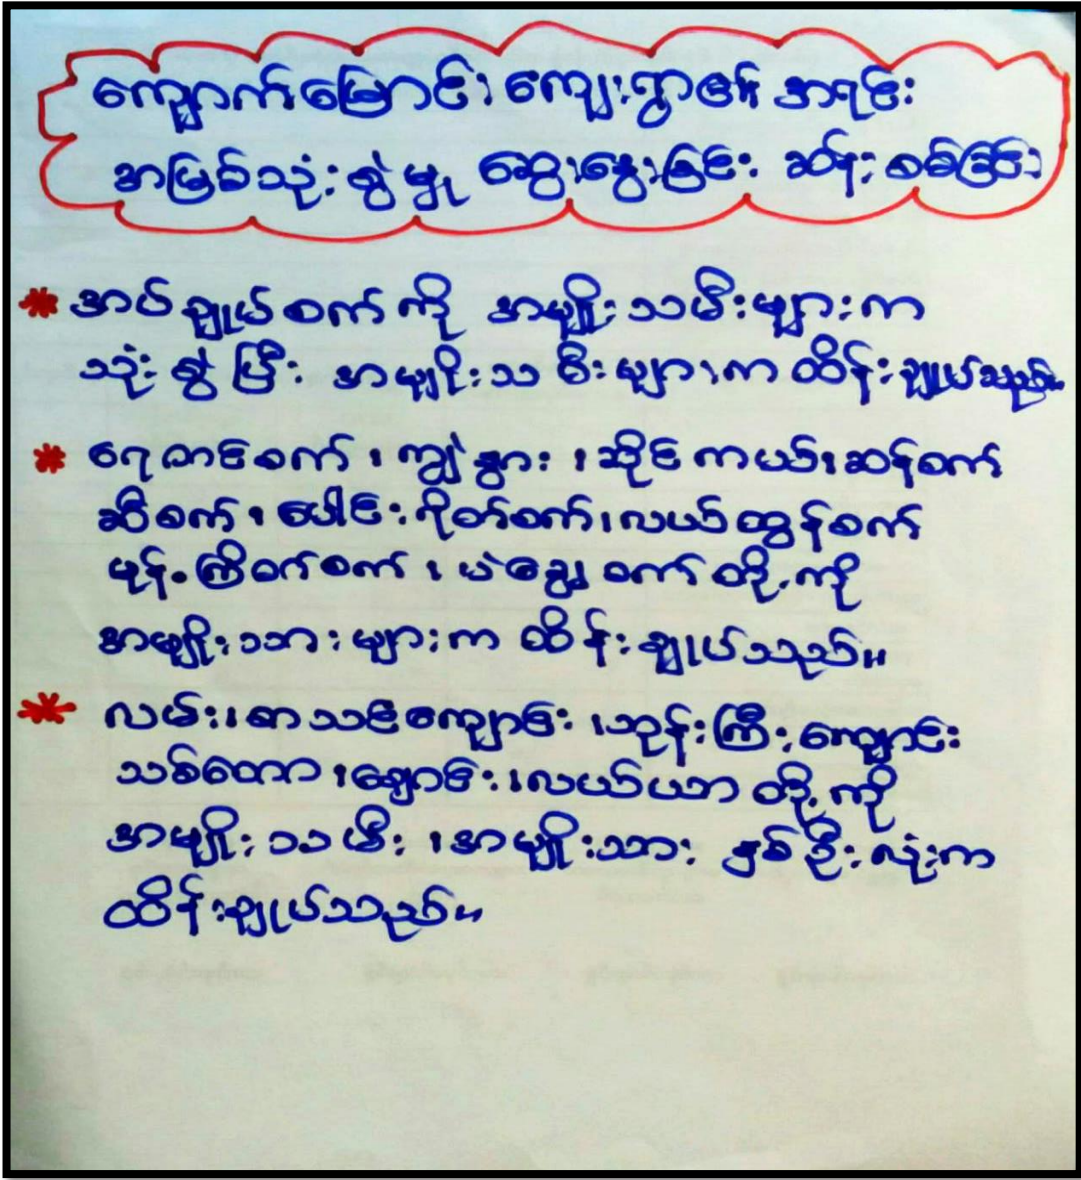 ကျောက်မြောင်း ကျေးရွာ၏ အရင်း
အမြစ်သုံးစွဲမှု ဆွေးနွေးခြင်း ဆန်းစစ်ခြင်း
* အပ်ချုပ်စက်ကို အမျိုးသမီးများက
သုံးစွဲပြီး အမျိုးသမီးများက ထိန်းချုပ်သည်။
* ရေတင်စက်၊ ကျွဲနွား၊ ဆိုင်ကယ်၊ ဆန်စက်
ဆီစက်၊ ပေါင်းဂိုတ်စက်၊ လယ်ထွန်စက်
မုန့်ကြိတ်စက်၊ ပဲချွေစက်တို့ကို
အမျိုးသားများက ထိန်းချုပ်သည်။
* လမ်း၊ စာသင်ကျောင်း၊ ဘုန်းကြီးကျောင်း
သစ်တော၊ ချောင်း၊ လယ်ယာတို့ကို
အမျိုးသမီး၊ အမျိုးသား နှစ်ဦးလုံးက
ထိန်းချုပ်သည်။